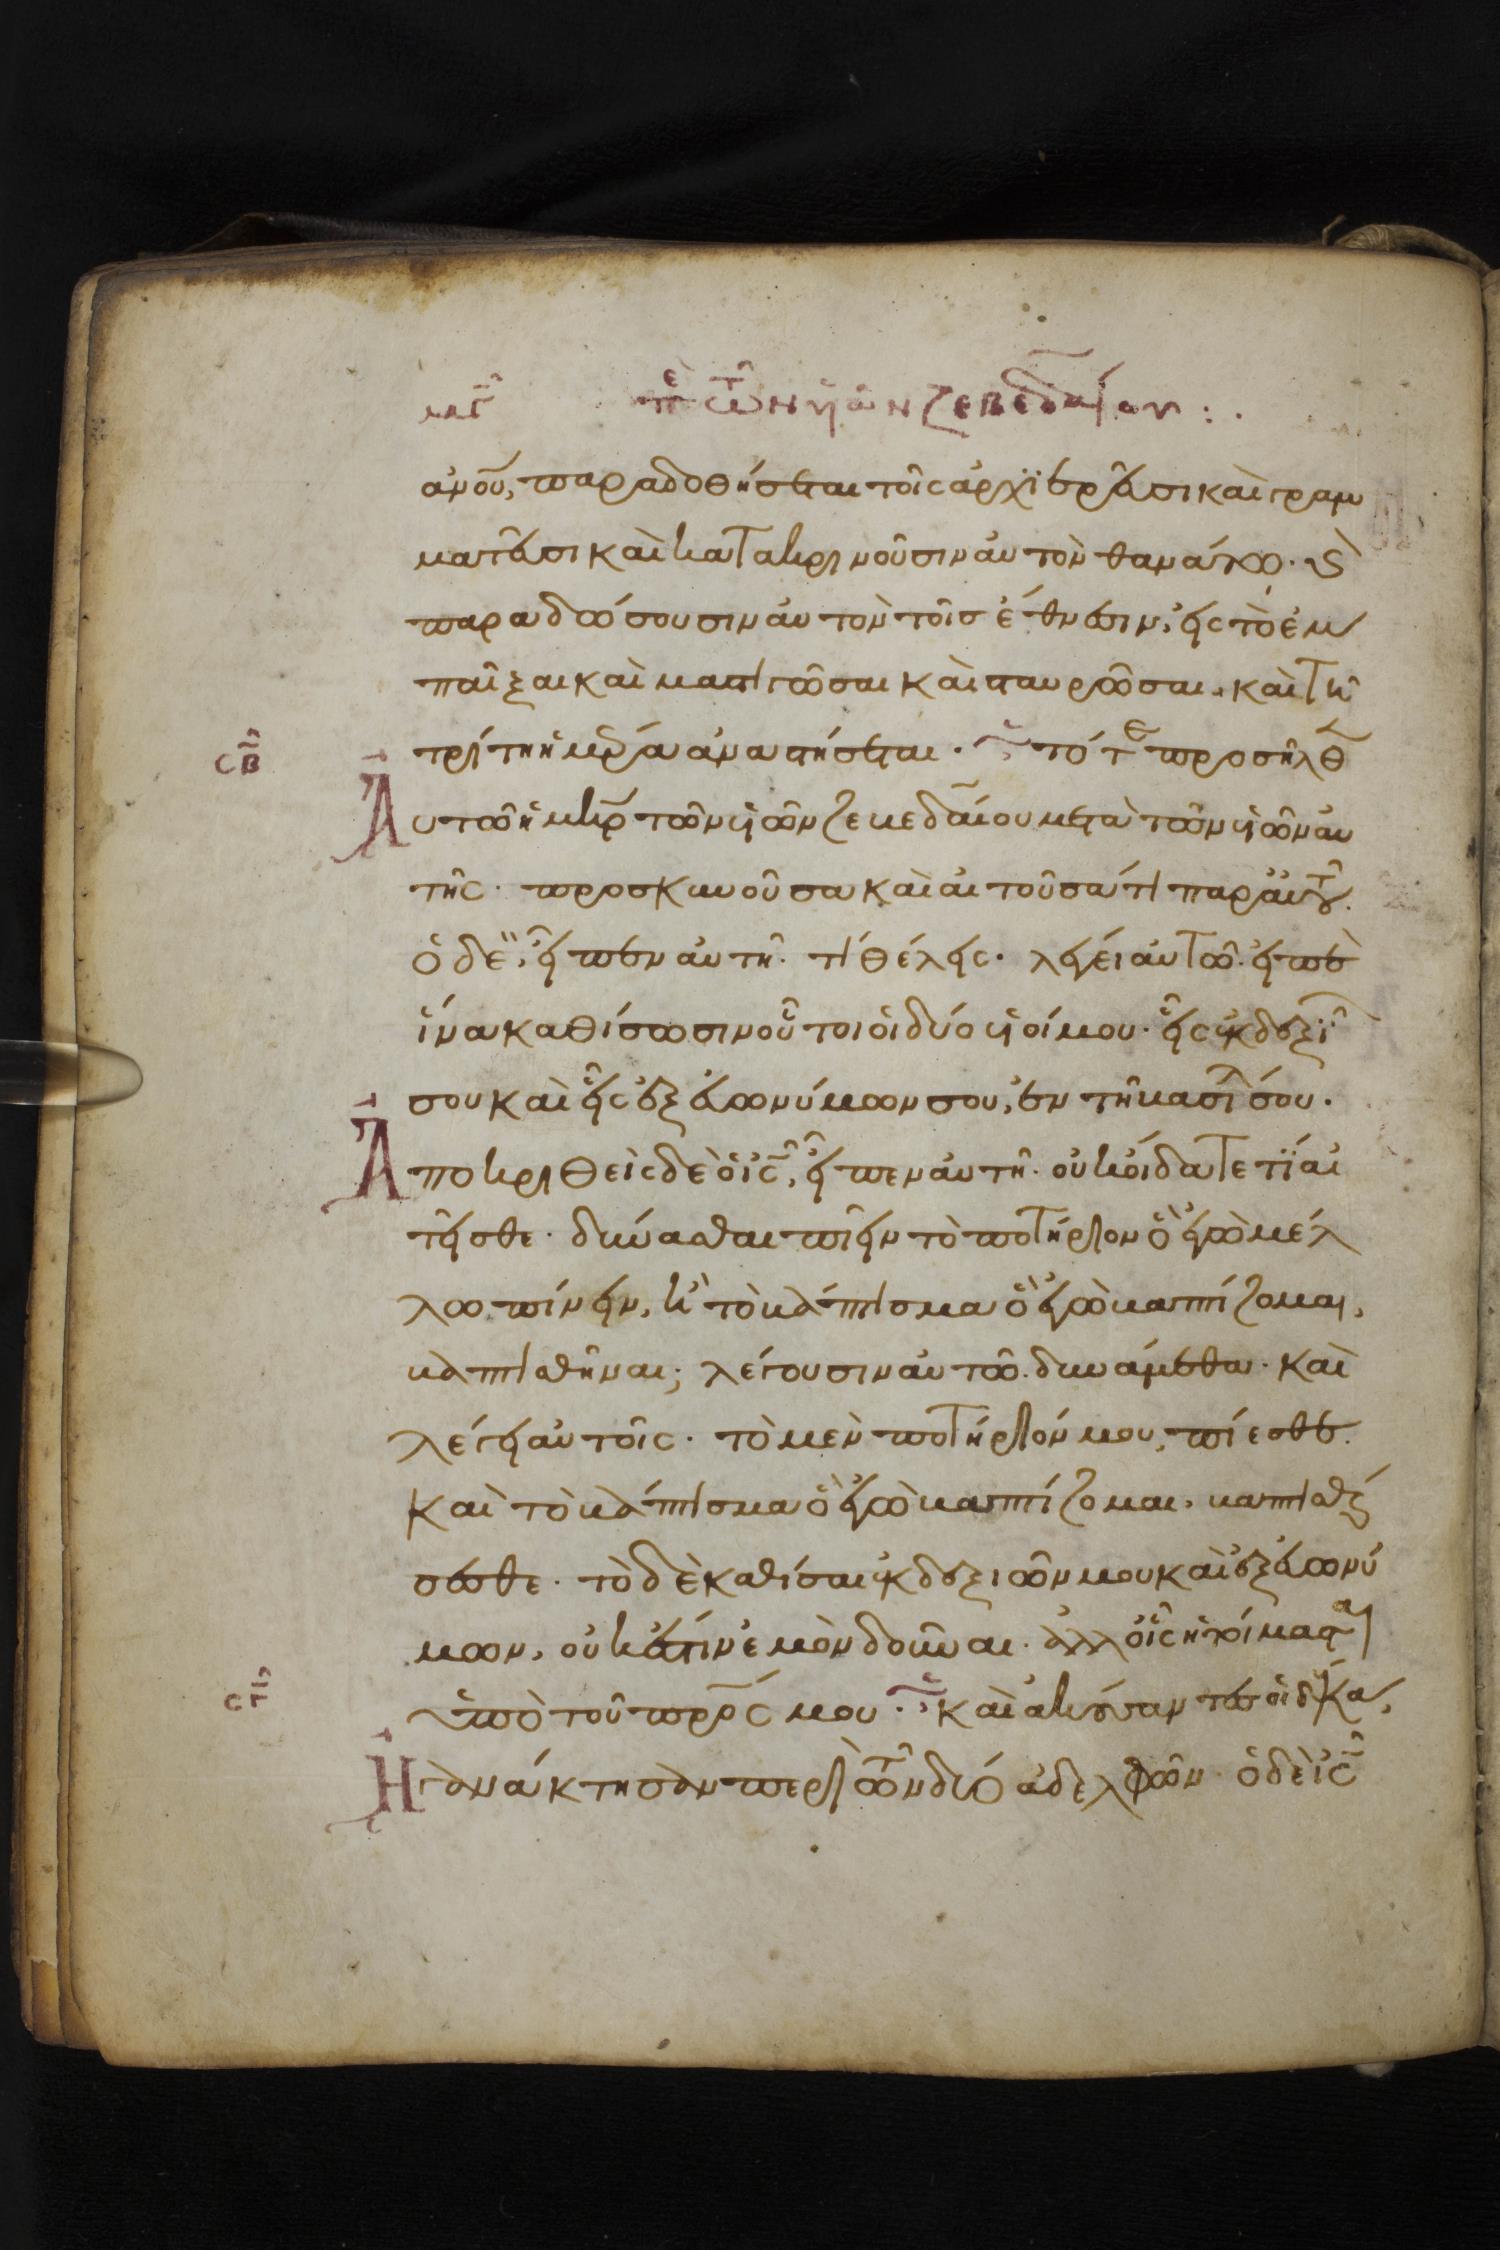 μγ̄ πε τῶν ὑῶν ζεβεδαίου :.
ἀνου, παραδοθήσεται τοῖς ἀρχϊερεῦσι καὶ γραμ
ματεῦσι καὶ κατακρινοῦσιν αὐτὸν θανάτω. καὶ
παραδώσουσιν αὐτὸν τοῖσ ἔθνεσιν, εἰς τὸ ἐμ
παῖξαι καὶ μαστιγῶσαι καὶ σταυρῶσαι. καὶ τῆ
σβ̄ τρίτη ἡμέρα ἀναστήσεται. τότε προσῆλθε
Αυτῶ ἡ μηρ τῶν υἱῶν ζεβεδαίου μετὰ τῶν υἱῶν αὐ
τῆς. προσκυνοῦσα καὶ αἰτοῦσά τι παρ' αὐτοῦ.
ὁ δὲ, εἶπεν αὐτῆ. τί θέλεις. λέγει αὐτῶ. εἰπὲ
ἵνα καθίσωσιν οὗτοι οἱ δύο υἱοί μου. εἷς ἐκ δεξιῶ
σου καὶ εἷς ἐξ εὐωνύμων σου, ἐν τῆ βασιλεία σου.
Αποκριθεὶς δὲ ὁ ις̄, εἶπεν αὐτῆ. οὐκ οἴδατε τί αἰ
τεῖσθε. δύνασθαι πιεῖν τὸ ποτήριον ὃ ἐγὼ μέλ
λω πίνειν, ἢ τὸ βάπτισμα ὃ ἐγὼ βαπτίζομαι,
βαπτισθῆναι; λέγουσιν αὐτῶ. δυνάμεθα. καὶ
λέγει αὐτοῖς. τὸ μὲν ποτήριόν μου, πίεσθε.
καὶ τὸ βάπτισμα ὃ ἐγὼ βαπτίζομαι, βαπτισθή
σεσθε. τὸ δὲ καθίσαι ἐκ δεξιῶν μου καὶ ἐξ εὐωνύ
μων, οὐκ ἔστιν ἐμὸν δοῦναι. ἀλλ' οἷς ἡτοίμασται
σγ̄ ὑπὸ τοῦ πρσ̄ μου. καὶ ἀκούσαντεσ οἱ δέκα,
Ηγανάκτησαν περὶ τῶν δύο ἀδελφῶν. ὁ δὲ ις̄